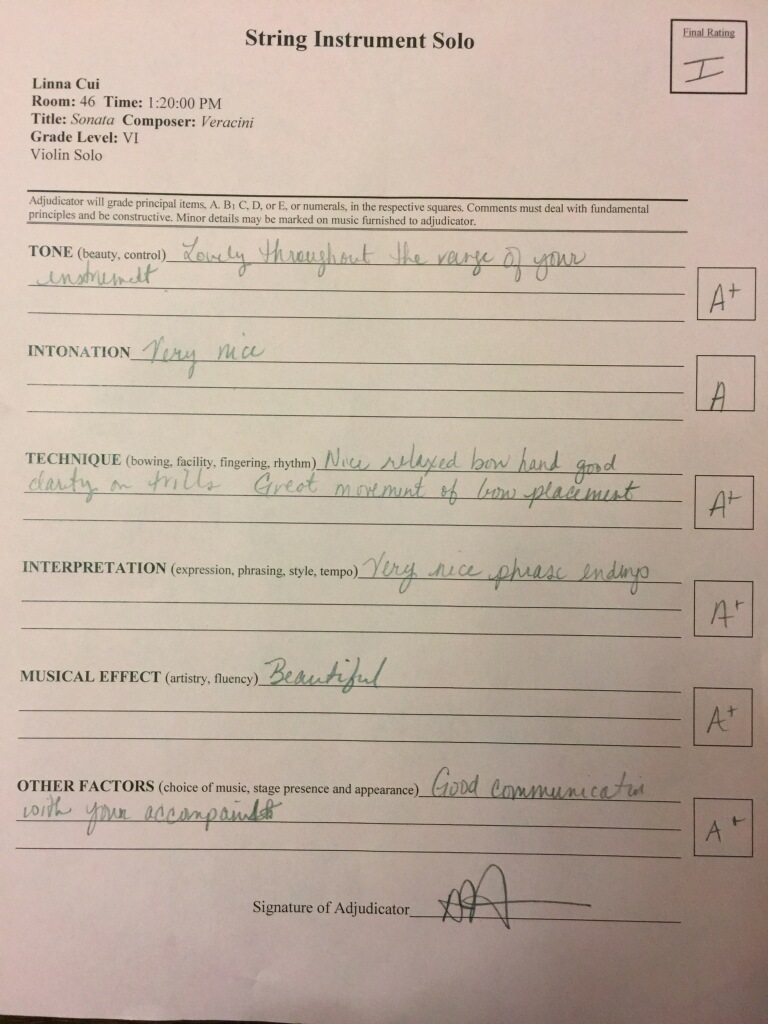 String Instrument Solo
Final Rating
I
Linna Cui
Room: 46 Time: 1:20:00 PM
Title: Sonata Composer: Veracini
Grade Level: VI
Violin Solo
Adjudicator will grade principal items, A. B1 C, D, or E, or numerals, in the respective squares. Comments must deal with fundamental
principles and be constructive. Minor details may be marked on music furnished to adjudicator.
TONE (beauty, control) Lovely throughout the range of your
instrument
A+
INTONATION Very nice
A
TECHNIQUE (bowing, facility, fingering, rhythm) Nice relaxed bow hand good
clarity on trills Great movement of bow placement
A+
INTERPRETATION (expression, phrasing, style, tempo) Very nice phrase endings
A+
MUSICAL EFFECT (artistry, fluency) Beautiful
A+
OTHER FACTORS (choice of music, stage presence and appearance) Good communication
with your
A+
Signature of Adjudicator